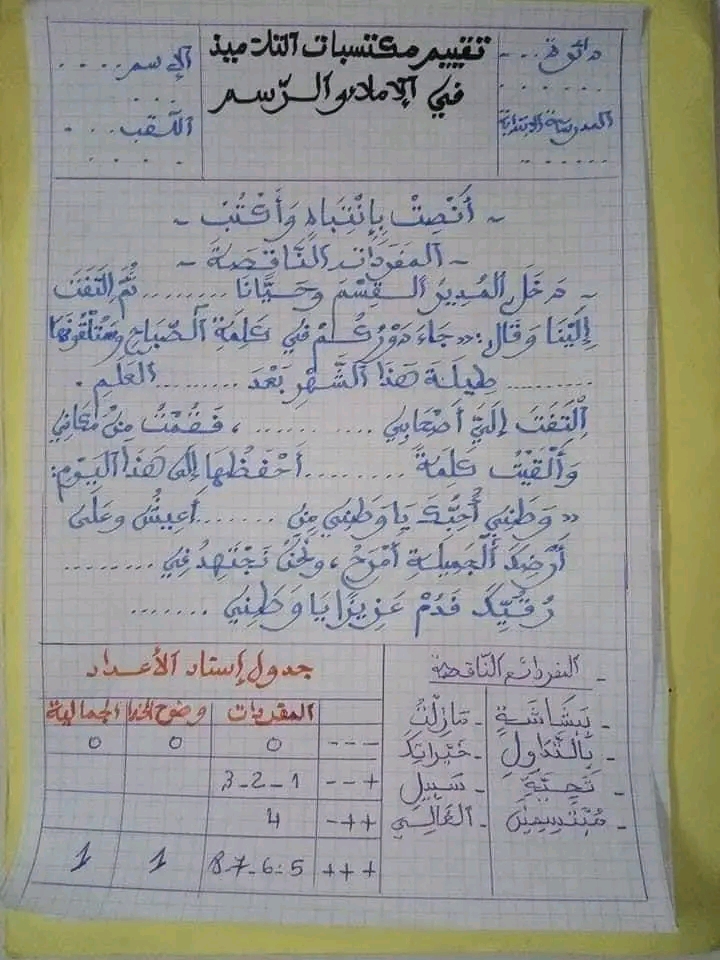 دائرة ....
......
المدرسة الابتدائية
......
تقييم مكتسبات التلاميذ
في الإملاء والرّسم
الإسم ....
...
اللّقب ...
....
~ أُنْصِتْ بِانْتِبَاهٍ وَأَكْتُبُ ~
~ المفردات النَّاقصةَ ~
~ دخَلَ المُدِيرُ القِسْمَ وحَيَّانَا ........ ثُمَّ الْتَفَتَ
إِلَيْنَا وَقَالَ: «جَاءَ دَوْرُكُمْ فِي كَلِمَةِ الصَّبَاحِ وسَتُلْقُونَهَا
......... طِيلَةَ هَذَا الشَّهْرِ بَعْدَ ......... العَلَمِ.
الْتَفَتَ إِلَيَّ أَصْحَابِي ........، فَقُمْتُ مِنْ مَكَانِي
وَأَلْقَيْتُ كَلِمَةً ........ أَحْفَظُهَا إِلَى هَذَا اليَوْمِ:
«وَطَنِي أُحِبُّكَ يَا وَطَنِي مِنْ ....... أَعِيشُ وعَلَى
أَرْضِكَ الْجَمِيلَةِ أَمْرَحُ، ونَحْنُ نَجْتَهِدُ فِي ........
رُقِيِّكَ فَدُمْ عَزِيزًا يَا وَطَنِي .......
- المفردات النَّاقصة
- بِبَشَاشَةٍ - مَازِلْتُ
- بِالتَّدَاوُلِ - خَيْرَاتِكَ
- تَحِيَّةِ - سَبِيلِ
- مُبْتَسِمِينَ - الغَالِي
جدول إسناد الأعداد
المفردات وضوح الخط الجمالية
--- 0 0 0
+-- 1-2-3
++- 4
+++ 5-6-7-8 1 1